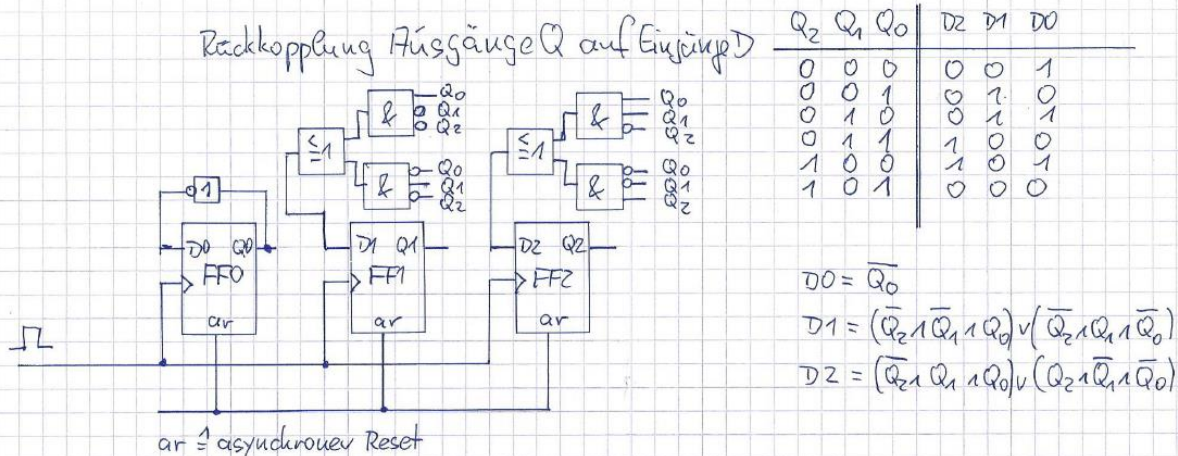 Rückkopplung Ausgänge Q auf Eingänge D
Q2 Q1 Q0 D2 D1 D0
0 0 0 0 0 1
0 0 1 0 1 0
0 1 0 0 1 1
0 1 1 1 0 0
1 0 0 1 0 1
1 0 1 0 0 0
& Q0 Q1 Q2
≤1
& Q0 Q1 Q2
& Q0 Q1 Q2
≤1
& Q0 Q1 Q2
1
D0 Q0
FF0
ar
D1 Q1
FF1
ar
D2 Q2
FF2
ar
D0 = Q̅0
D1 = (Q̅2 ∧ Q̅1 ∧ Q0) ∨ (Q̅2 ∧ Q1 ∧ Q̅0)
D2 = (Q̅2 ∧ Q1 ∧ Q0) ∨ (Q2 ∧ Q̅1 ∧ Q̅0)
ar ≙ asynchroner Reset